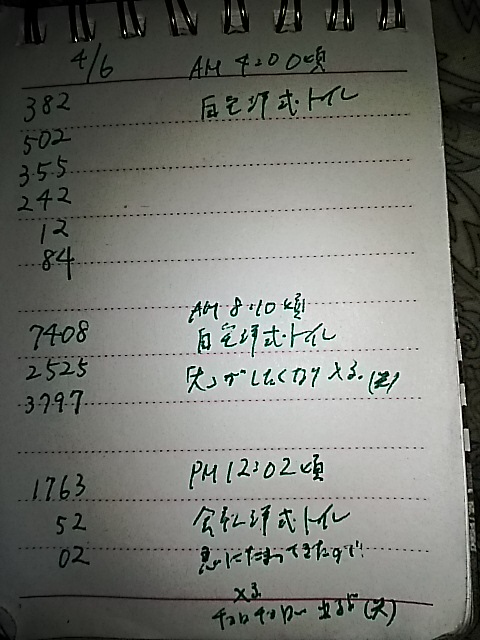 4/6 AM 4:00頃
382 自宅洋式トイレ
502
355
242
12
84
AM 8:10頃
7408 自宅洋式トイレ
2525 したくなり
3797
PM 12:02頃
1763 会社洋式トイレ
52 急にたまってきたので
02
チョロチョロ 出るが (大)